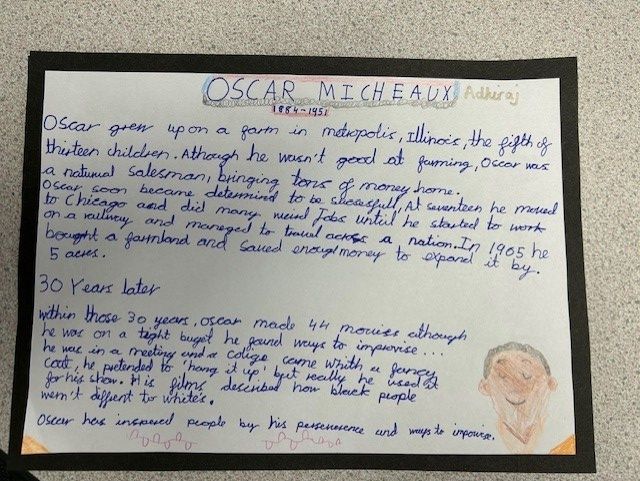 OSCAR MICHEAUX
Adhiraj
1884-1951
Oscar grew up on a farm in metropolis, Illinois, the fifth of
thirteen children. Athough he wasn't good at farming, Oscar was
a natural salesman, bringing tons of money home.
Oscar soon became determined to be sucessfull, At seventeen he moved
to Chicago and did many menial jobs until he started to work
on a railway and managed to travel across a nation. In 1905 he
bought a farmland and saved enough money to expand it by.
5 acres.
30 Years later
within those 30 years, oscar made 44 movies although
he was on a tight buget he found ways to improvise...
he was in a meeting and a colige came whith a fancy
coat, he pretended to 'hang it up' but really he used it
for his show. His films described how black people
wern't diffent to white's.
Oscar has inspered people by his perseverence and ways to improvise.